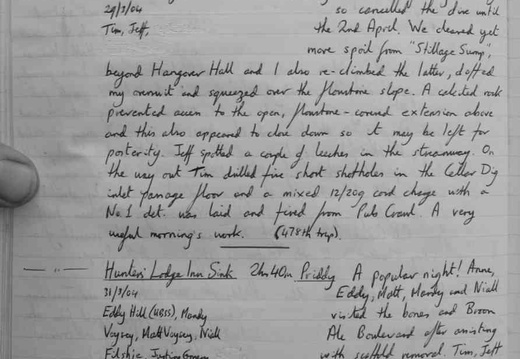 29/3/04 so cancelled the dive until
Tim, Jeff, the 2nd April. We cleared yet
more spoil from "Stillage Sump",
beyond Hangover Hall and I also re-climbed the latter, doffed
my oversuit and squeezed over the flowstone slope. A calcited rock
prevented access to the open, flowstone-covered extension above
and this also appeared to close down so it may be left for
posterity. Jeff spotted a couple of leeches in the streamway. On
the way out Tim drilled five short shotholes in the Cellar Dig
inlet passage floor and a mixed 12/20g cord charge with a
No.1 det. was laid and fired from Pub Crawl. A very
useful morning's work. (478th trip).
Hunters' Lodge Inn Sink 2hr 40m Priddy A popular night! Anne,
31/3/04 Eddy, Matt, Mandy and Niall
Eddy Hill (UBSS), Mandy visited the bones and Broon
Voysey, Matt Voysey, Niall Ale Boulevard after assisting
with scaffold removal. Tim, Jeff